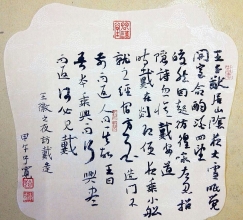 王子猷居山陰夜大雪眠覺
開室命酌酒四望
皎然因起彷徨詠左思招
隱詩忽憶戴安道
時戴在剡即便夜乘小船
就之經宿方至造門不
前而返人問其故王曰
吾本乘興而行興盡
而返何必見戴
王徽之夜訪戴逵
甲午